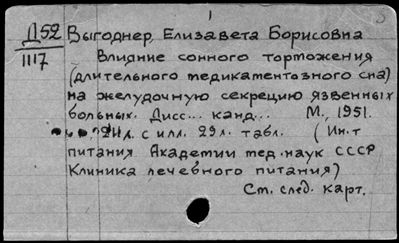 Д52 Выгоднер, Елизавета Борисовна
1117 Влияние сонного торможения
(длительного медикаментозного сна)
на желудочную секрецию язвенных
больных. Дисс... канд... М., 1951.
л. с илл. 29 л. табл. (Ин-т
питания Академии мед. наук СССР
Клиника лечебного питания)
См. след. карт.